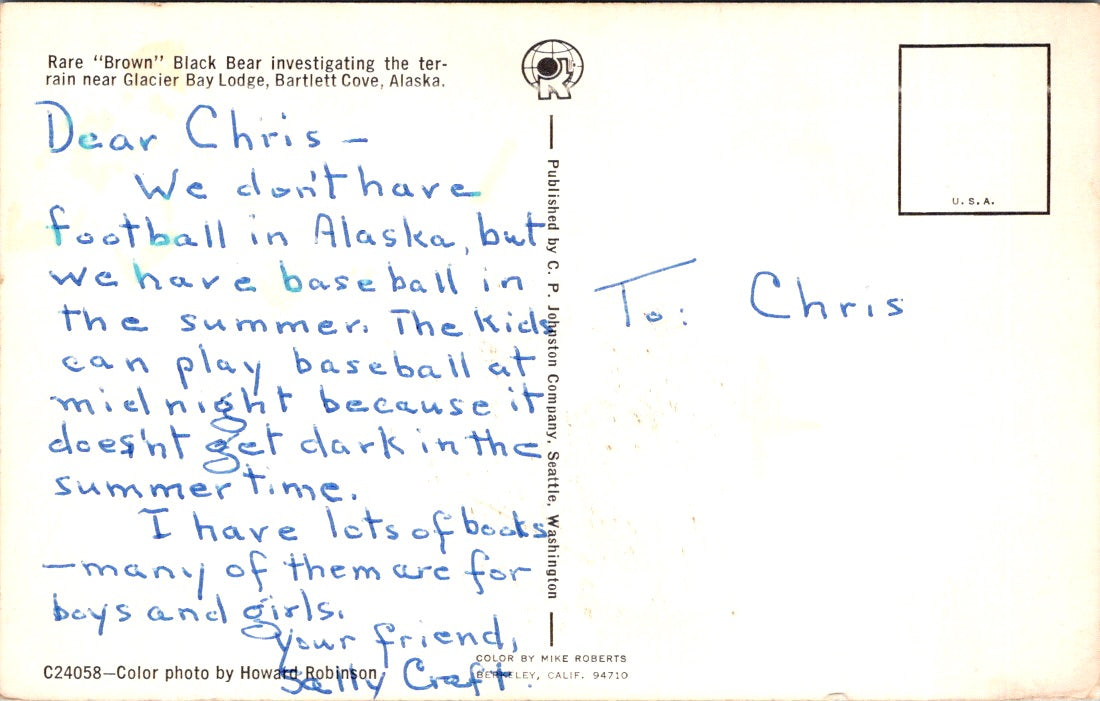 Rare "Brown" Black Bear investigating the ter-
rain near Glacier Bay Lodge, Bartlett Cove, Alaska.
Dear Chris —
We don't have
football in Alaska, but
we have baseball in
the summer. The kids
can play baseball at
midnight because it
does'nt get dark in the
summertime.
I have lots of books
—many of them are for
boys and girls.
Your friend,
Sally Craft.
C24058—Color photo by Howard Robinson
Published by C. P. Johnston Company, Seattle, Washington
COLOR BY MIKE ROBERTS
BERKELEY, CALIF. 94710
U.S.A.
To: Chris